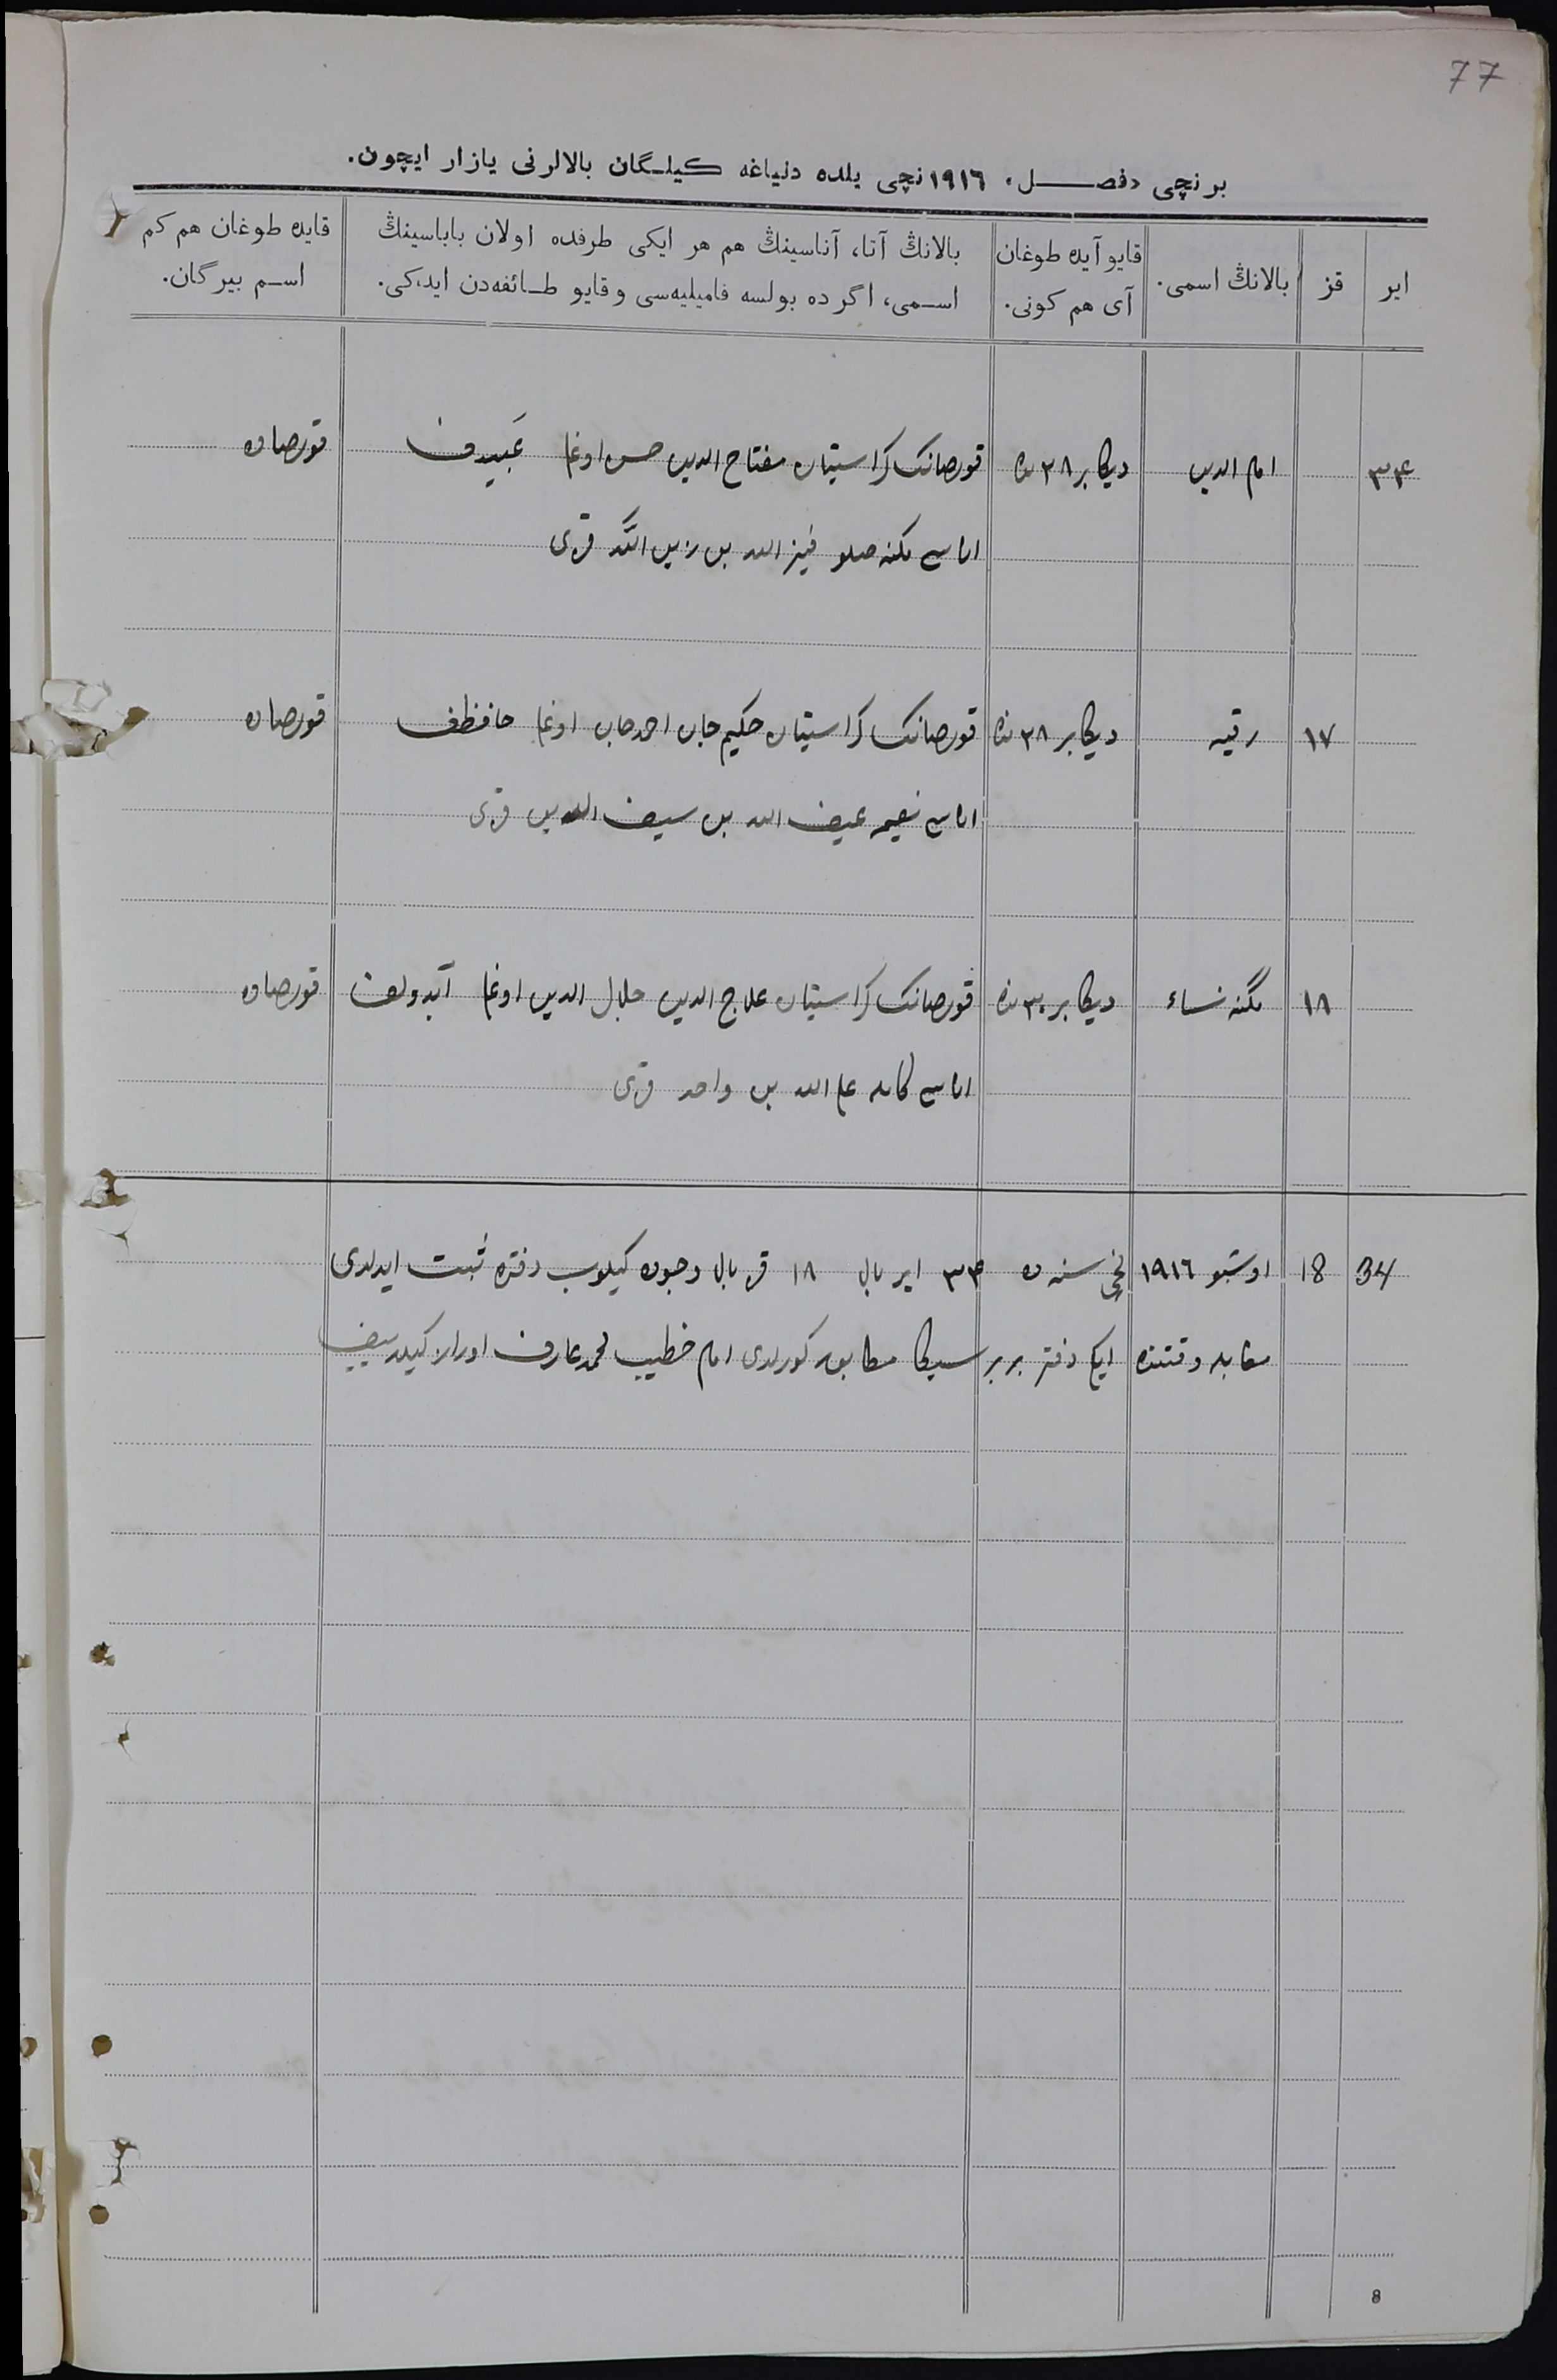 77
برنچی «فصل» ١٩١٦نچی یلده دنیاغه کیلگان بالالرنی یازار ایچون.
ایر
قز
بالانڭ اسمی.
قایو آیده طوغان
آی هم کونی.
بالانڭ آتا، آناسینڭ هم هر ایکی طرفده اولان باباسینڭ
اسمی، اگرده بولسه فامیلیه‌سی و قایو طائفه‌دن ایدکی.
قایده طوغان هم کم
اسم بیرگان.
٣٤ امام الدین دیکابر ٢٨ نده قورصانک کراستیان مفتاح الدین حسن اوغلی عبیدف قورصاده
اناسی فیز الله بن زین الله قزی
١٧ رقیه دیکابر ٢٨ نده قورصانک کراستیان حکیم جان احمدجان اوغلی حافظف قورصاده
اناسی نعیمه الله بن سیف الله بن قزی
١٨ نساء دیکابر ٣٠ نده قورصانک کراستیان علاج الدین جلال الدین اوغلی آبدولف قورصاده
اناسی کامله علم الله بن واحد قزی
34 18 اوشبو ١٩١٦ نچی سنه ده ٣٤ ایر بال ١٨ قز بال وجوده کیلوب دفتره ثبت ایدلدی
مقابله وقتنده ایکی دفتر بربرسیکا مطابق کورلدی امام خطیب محمدعارف
8